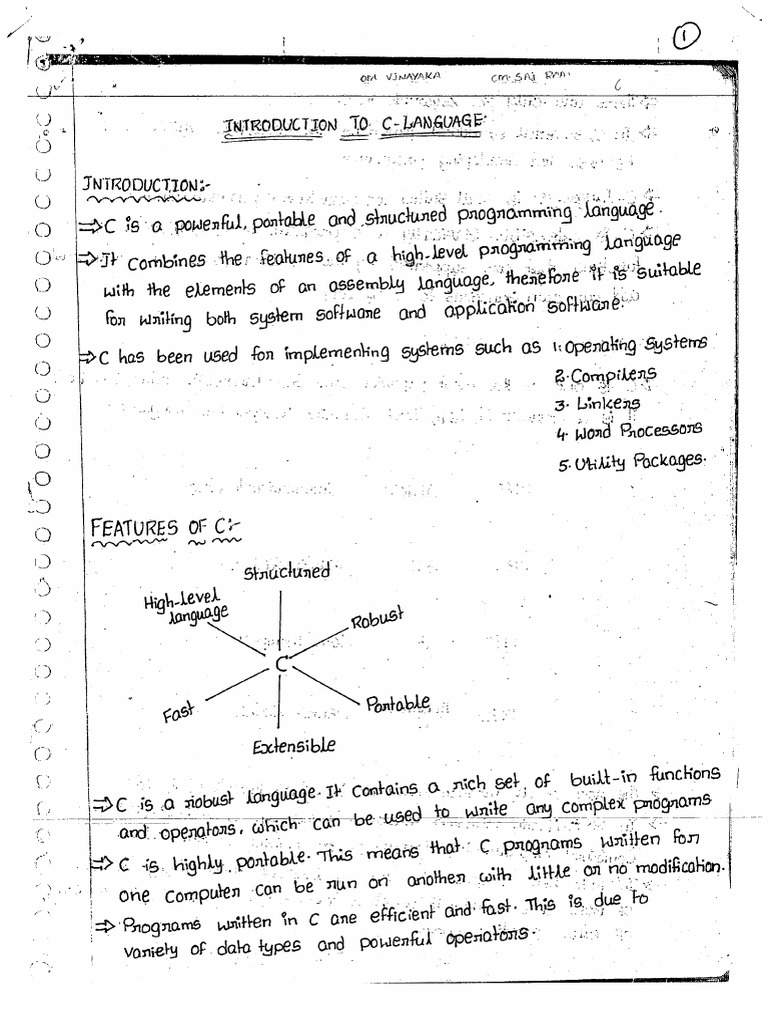 1
OM VINAYAKA OM SAI RAM
6
INTRODUCTION TO C-LANGUAGE
INTRODUCTION:-
⇒C is a powerful, portable and structured programming language.
⇒It combines the features of a high-level programming language
with the elements of an assembly language, therefore it is suitable
for writing both system software and application software.
⇒C has been used for implementing systems such as 1. Operating Systems
2. Compilers
3. Linkers
4. Word Processors
5. Utility Packages.
FEATURES OF C:-
Structured
High-level
language
Robust
C
Fast
Portable
Extensible
⇒C is a robust language. It contains a rich set of built-in functions
and operators, which can be used to write any complex programs
⇒ C is highly portable. This means that C programs written for
one computer can be run on another with little or no modification.
⇒ Programs written in C are efficient and fast. This is due to
variety of data types and powerful operators.